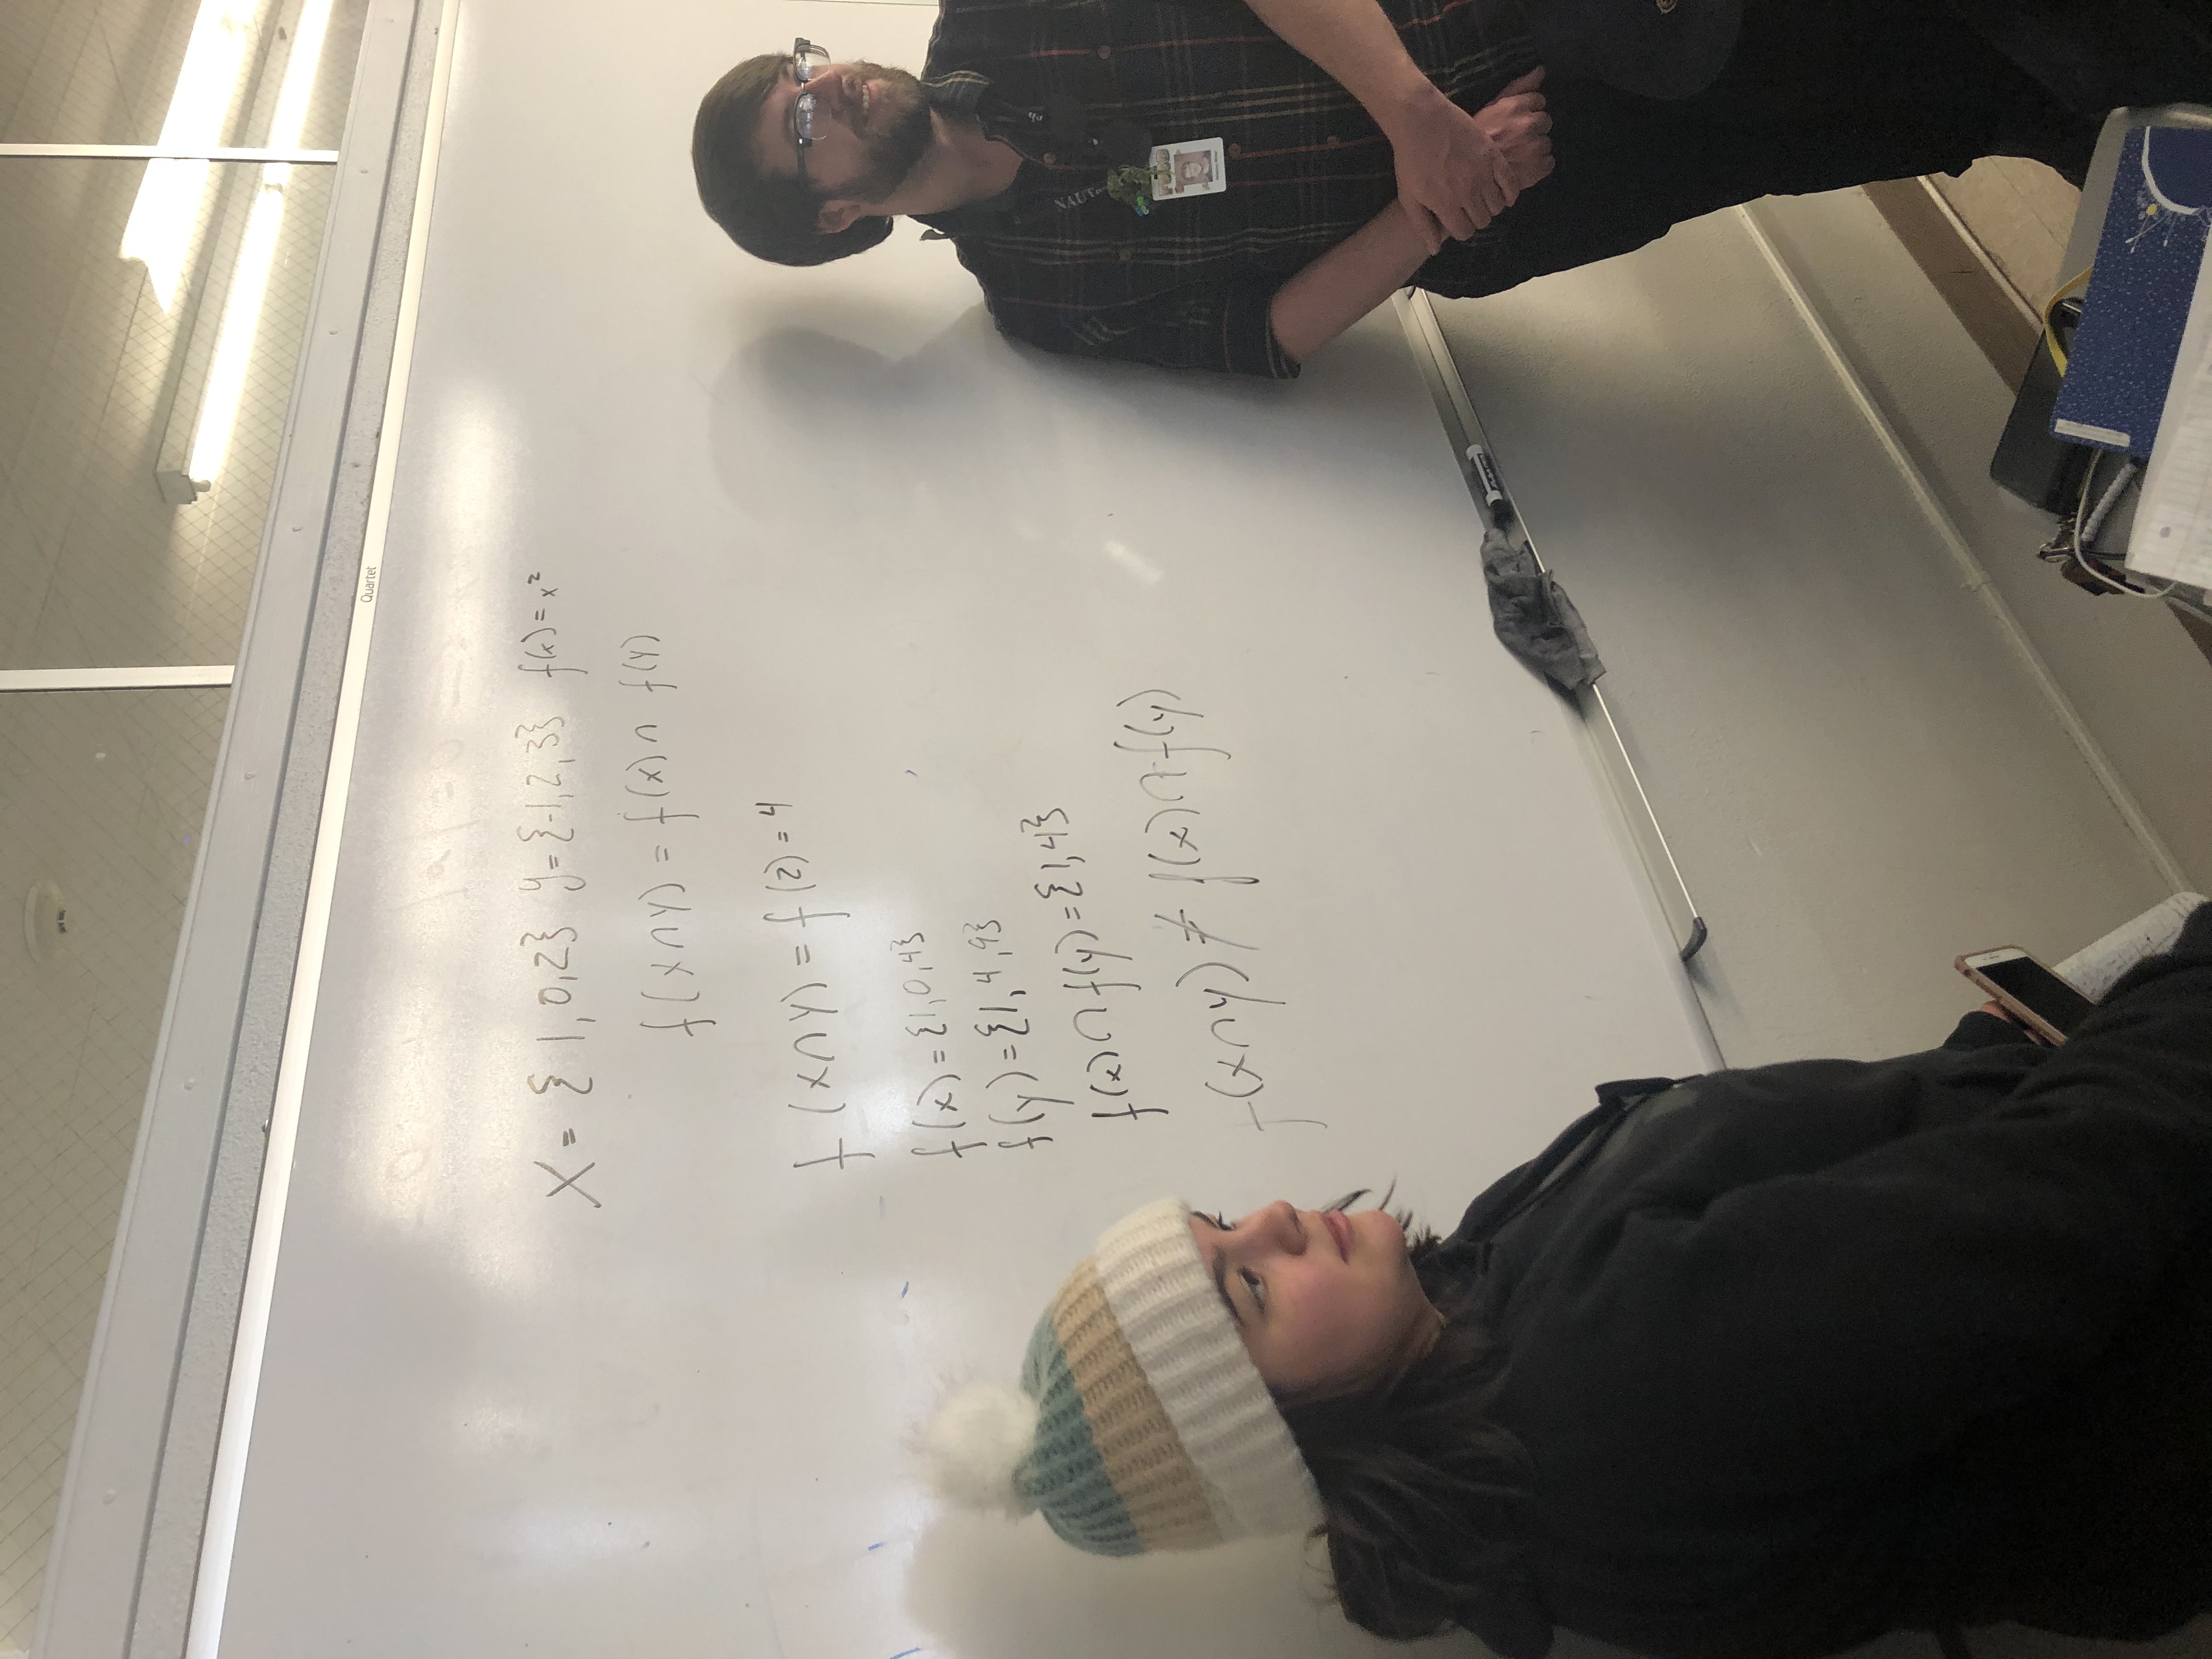 Quartet
X = { 1, 0, 2} y = {-1, 2, 3} f(x) = x²
f(x∩y) = f(x) ∩ f(y)
f(x∩y) = f(2) = 4
f(x) = {1, 0, 4}
f(y) = {1, 4, 9}
f(x) ∩ f(y) = {1, 4}
f(x∩y) ≠ f(x) ∩ f(y)
FOOD